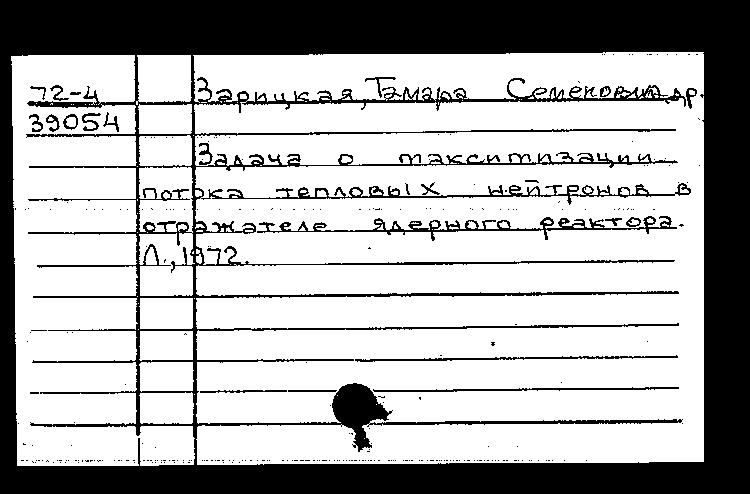 72-4 Зарицкая, Тамара Семеновна и др.
39054
Задача о максимизации
потока тепловых нейтронов в
отражателе ядерного реактора.
Л., 1972.